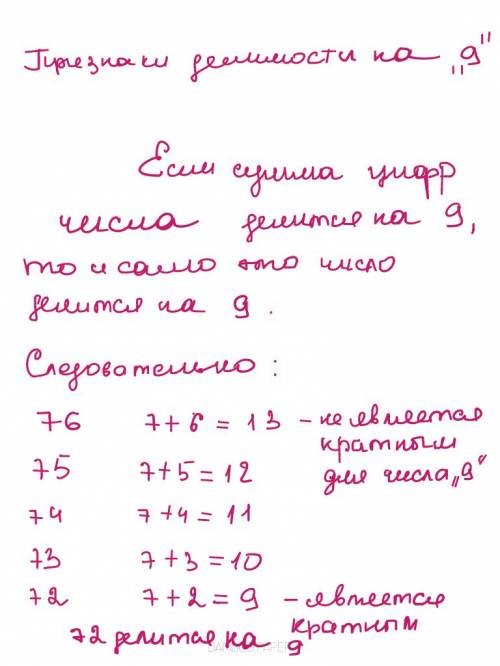 Признаки делимости на „9"
Если сумма цифр
числа делится на 9,
то и само это число
делится на 9.
Следовательно:
76 7+6=13 – не является
кратным
75 7+5=12 для числа „9"
74 7+4=11
73 7+3=10
72 7+2=9 – является
кратным
72 делится на 9